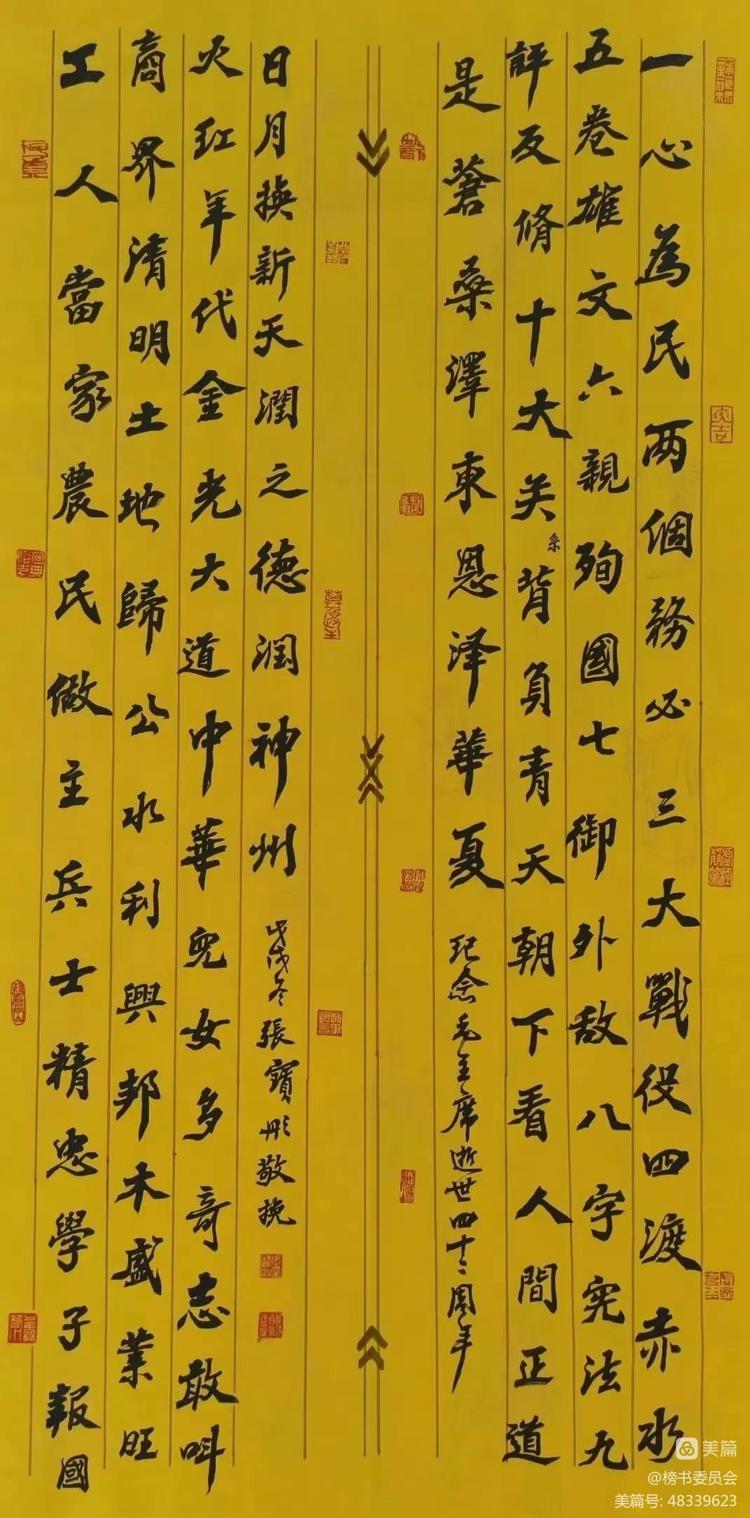 一心為民两個務必三大戰役四渡赤水
五卷雄文六親殉國七御外敌八字宪法九
評反脩十大关系背負青天朝下看人間正道
是蒼桑澤東恩泽華夏
纪念毛主席逝世四十二周年
工人當家農民做主兵士精忠學子報國
商界清明土地歸公水利興邦木盛業旺
火红年代金光大道中華兒女多奇志敢叫
日月换新天潤之德潤神州
戊戌冬張寶彤敬挽
美篇
@榜书委员会
美篇号: 48339623